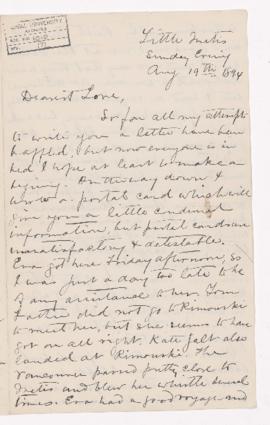 McGILL UNIVERSITY
ARCHIVES
Little Metis
Sunday Evening
Aug 19th 1894
Dearest Love,
So far all my attempts
to write you a letter have been
baffled, but now everyone is in
bed I hope at least to make a
begining. On the way down I
wrote a postal card which will
give you a little condensed
information, but postal cards are
unsatisfactory & detestable.
Eva got here Friday afternoon, so
I was just a day too late to be
of any assistance to her. Tom
did not go to Rimouski
to meet her, but she seems to have
got on all right. Kate Galt also
landed at Rimouski. The
Vancouver passed pretty close to
Metis and blew her whistle several
times. Eva had a good voyage and